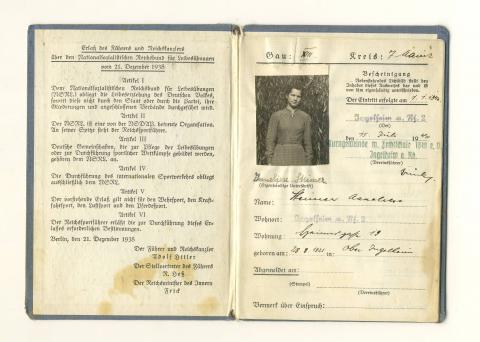 Erlaß des Führers und Reichskanzlers
über den Nationalsozialistischen Reichsbund für Leibesübungen
vom 21. Dezember 1938
Artikel I
Dem Nationalsozialistischen Reichsbund für Leibesübungen
(NSRL) obliegt die Leibeserziehung des Deutschen Volkes,
soweit diese nicht durch den Staat oder durch die Partei, ihre
Gliederungen und angeschlossenen Verbände durchgeführt wird.
Artikel II
Der NSRL ist eine von der NSDAP. betreute Organisation.
An seiner Spitze steht der Reichssportführer.
Artikel III
Deutsche Gemeinschaften, die zur Pflege der Leibesübungen
oder zur Durchführung sportlicher Wettkämpfe gebildet werden,
gehören dem NSRL an.
Artikel IV
Die Durchführung des internationalen Sportverkehrs obliegt
ausschließlich dem NSRL.
Artikel V
Der vorstehende Erlaß gilt nicht für den Wehrsport, den Kraft-
fahrsport, den Luftsport und den Pferdesport.
Artikel VI
Der Reichssportführer erläßt die zur Durchführung dieses Er-
lasses erforderlichen Bestimmungen.
Berlin, den 21. Dezember 1938
Der Führer und Reichskanzler
Adolf Hitler
Der Stellvertreter des Führers
R. Heß
Der Reichsminister des Innern
Frick
Gau: XIII Kreis: 7 Mainz
Bescheinigung
Der Eintritt erfolgte am
Ingelheim a. Rh. 2
(Ort)
den 15.
Turngemeinde
Ingelheim a. Rh.
(Vereinsführer)
(Eigenhändige Unterschrift)
Name:
Wohnort: Ingelheim a. Rh. 2
Wohnung 19
geboren am: 28. in Ober Ingelheim
Abgemeldet am:
(Stempel) (Vereinsführer)
Vermerk über Einspruch: